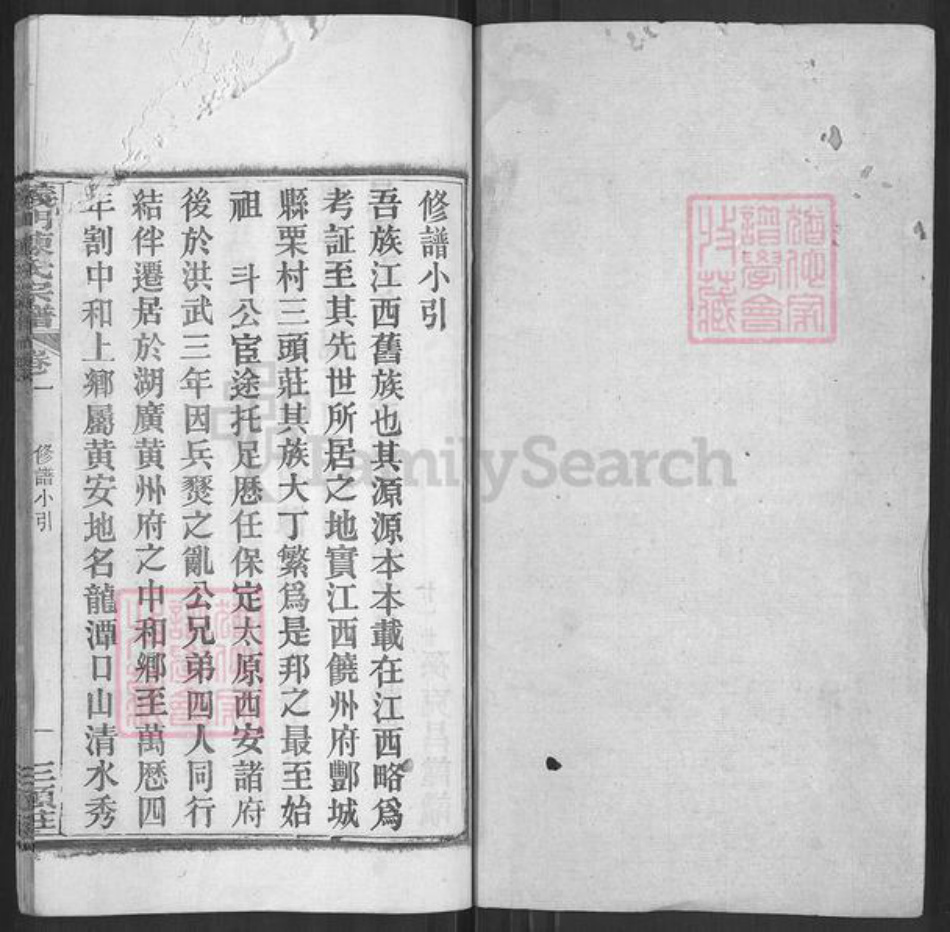 修譜小引
吾族江西舊族也其源源本本載在江西略爲
考証至其先世所居之地實江西饒州府酆城
縣栗村三頭莊其族大丁繁爲是邦之最至始
祖　斗公宦途托足歷任保定太原西安諸府
後於洪武三年因兵燹之亂公兄弟四人同行
結伴遷居於湖廣黃州府之中和鄉至萬歷四
年割中和上鄉屬黃安地名龍潭口山清水秀
義門陳氏宗譜
卷一
修譜小引
一
三頭莊
FamilySearch
譜學會
收藏